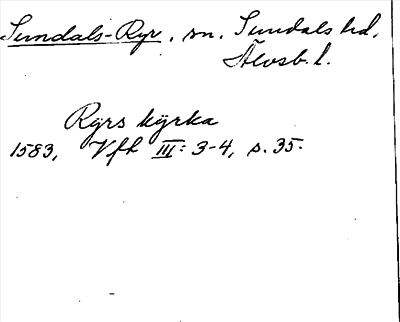 Sundals-Ryr, sn. Sundals hd,
Älvsb. l.
Ryrs kyrka
1583, Vfh III: 3-4, s. 35.